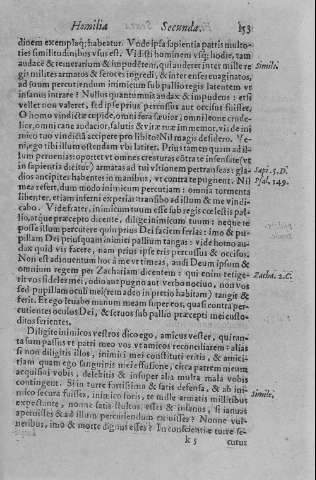 Homilia Secundæ. 153
dinem exemplaq; habeatur. Vnde ipsa sapientia patris multo-
ties similitudinibus usus est. Vidisti hominem usq; hodie, tam
audacē & temerarium & impudētem, qui auderet inter mille re
gis milites armatos & feroces ingredi, & inter enses euaginatos,
ad suum percutiendum inimicum sub pallio regis latentem ut
insanus intrare? Nullus quantumuis audax & impudens: etsi
vellet non valeret, sed ipse prius percussus aut occisus fuisset.
O homo vindictæ cupide, omni fera sæuior, omni leone crude-
lior, omni cane audacior, salutis & vitæ tuæ immemor, vis de ini
mico tuo vindictā accipere pro libito? Nil magis desidero. Ve-
ni, ego tibi illum ostendam vbi latitet. Prius tamen quam ad il-
lum peruenias oportet vt omnes creaturas cōtra te insensate (vt
in sapientia dicitur) armatas ad tui vltionem pertranseas: gla-
dios ancipites habentes in manibus, vt contra te pugnent. Nil
mea refert, dum modo inimicum percutiam: omnia tormenta
libenter, etiam inferni experiar transibo ad illum & me vindi-
cabo. Vide frater, inimicum tuum esse sub regis cœlestis pal-
lio, atque præcepto dicente, diligite inimicum tuum: neque te
posse illum percutere quin prius Dei faciem ferias: imo & pu-
pillam Dei priusquam inimici pallium tangas: vide homo au-
dax quid vis facere, nam prius ipse eris percussus & occisus.
Non est adinuentum hoc à me vt timeas, audi Deum ipsum &
omnium regem per Zachariam dicentem: qui enim tetige-
rit vos fideles mei, odio aut pugno aut verbo nociuo, non vos
sed pupillam oculi mei (rem adeo in pretio habitam) tangit &
ferit. Ergo leuabo manum meam super eos, quasi contra per-
cutientes oculos Dei, & seruos sub pallio præcepti mei custo-
ditos ferientes.
Diligite inimicos vestros dico ego, amicus vester, qui tan-
ta sum passus vt patri meo vos vt amicos reconciliarem: alias
si non diligitis illos, inimici mei constituti eritis, & amici-
tiam quam ego sanguinis mei effusione, circa patrem meum
acquisiui vobis, delebitis & insuper alia multa mala vobis
contingent. Si in turre fortissima & satis defensa, & ab ini-
mico secura fuisses, inimico foris, te mille armatis militibus
expectante, nonne satis stultus esses & insanus, si ianuas
aperuisses & ad illum percutiendum exiuisses? Nonne vul-
neribus, imo & morte dignus esses? In conscientiæ turre se-
k 5 curus
Simile.
Sapi. 5. D.
Psal. 149.
Zacha. 2. C.
Simile.